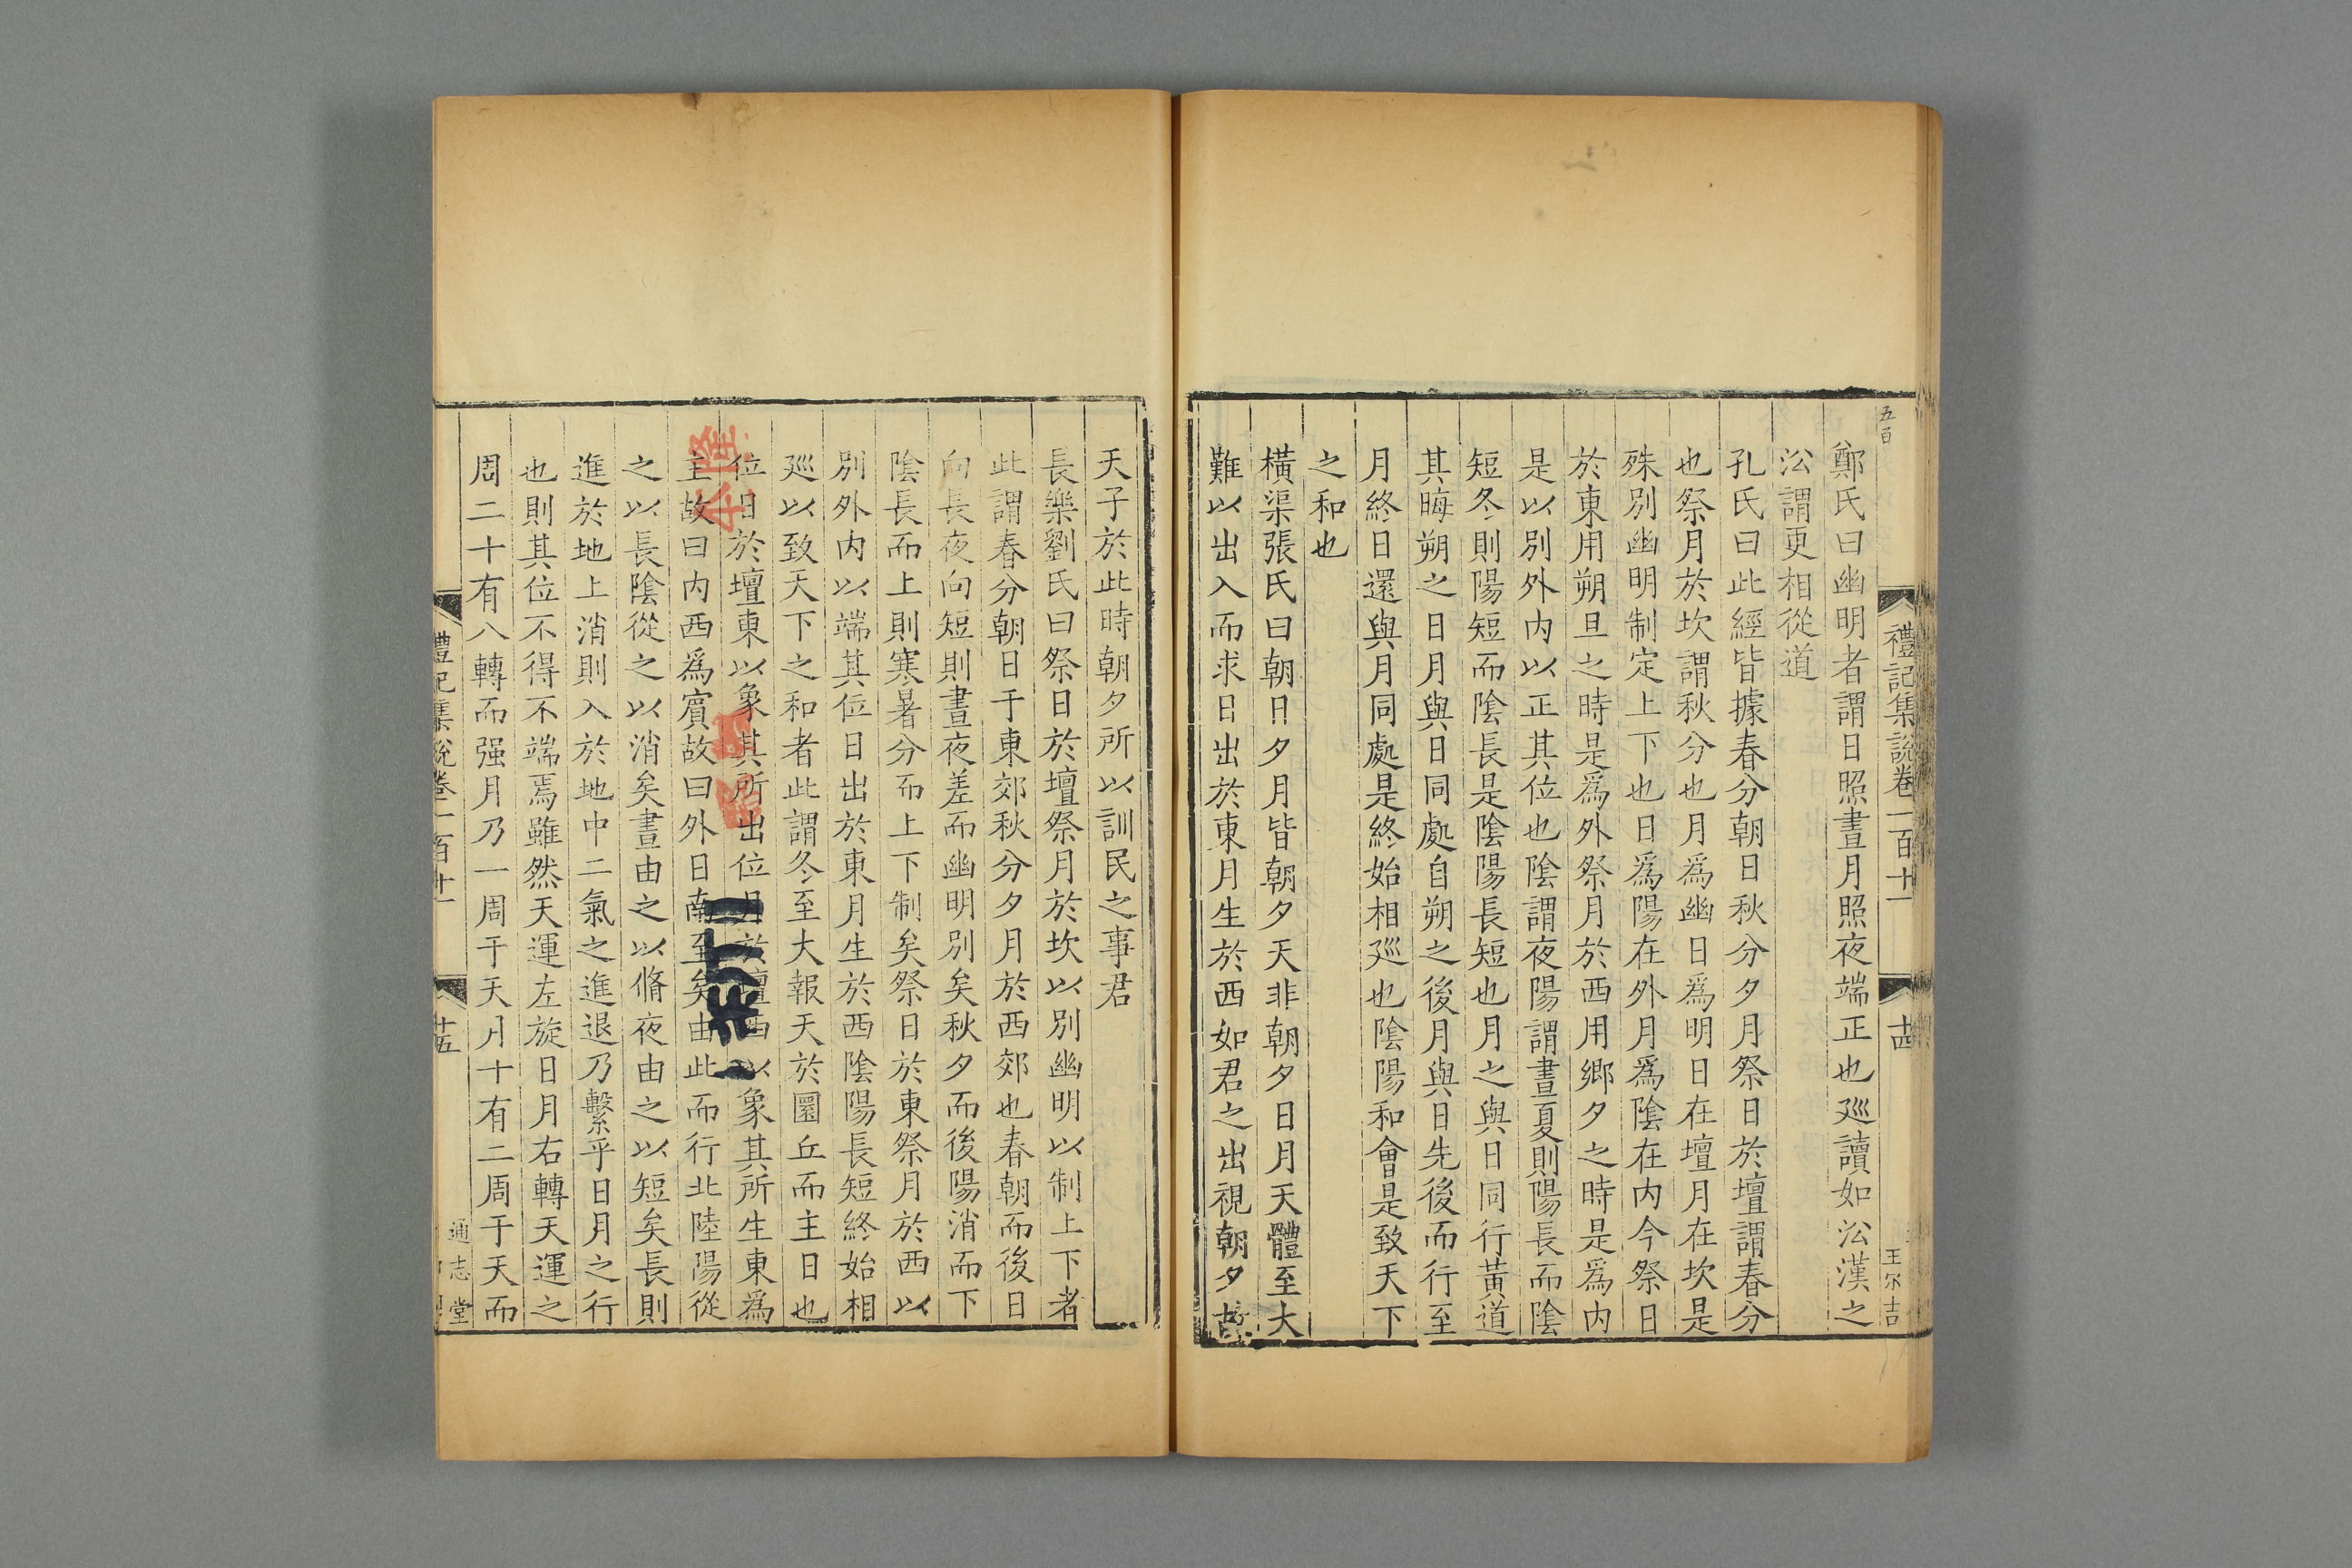 五百
禮記集說卷一百十一
十四
王尔吉
鄭氏曰幽明者謂日照晝月照夜端正也廵讀如㳂漢之
㳂謂更相從道
孔氏曰此經皆據春分朝日秋分夕月祭日於壇謂春分
也祭月於坎謂秋分也月爲幽日爲明日在壇月在坎是
殊別幽明制定上下也日爲陽在外月爲陰在内今祭日
於東用朔旦之時是爲外祭月於西用鄉夕之時是爲内
是以別外内以正其位也陰謂夜陽謂晝夏則陽長而陰
短冬則陽短而陰長是陰陽長短也月之與日同行黃道
其晦朔之日月與日同處自朔之後月與日先後而行至
月終日還與月同處是終始相廵也陰陽和會是致天下
之和也
橫渠張氏曰朝日夕月皆朝夕天非朝夕日月天體至大
難以出入而求日出於東月生於西如君之出視朝夕故
天子於此時朝夕所以訓民之事君
長樂劉氏曰祭日於壇祭月於坎以別幽明以制上下者
此謂春分朝日于東郊秋分夕月於西郊也春朝而後日
向長夜向短則晝夜差而幽明別矣秋夕而後陽消而下
陰長而上則寒暑分而上下制矣祭日於東祭月於西以
別外内以端其位日出於東月生於西陰陽長短終始相
廵以致天下之和者此謂冬至大報天於圜丘而主日也
位日於壇東以象其所出位月於壇西以象其所生東爲
主故曰内西爲賔故曰外日南至矣由此而行北陸陽從
之以長陰從之以消矣晝由之以脩夜由之以短矣長則
進於地上消則入於地中二氣之進退乃繫乎日月之行
也則其位不得不端焉雖然天運左旋日月右轉天運之
周二十有八轉而强月乃一周于天月十有二周于天而
禮記集說卷一百十一
十五
通志堂